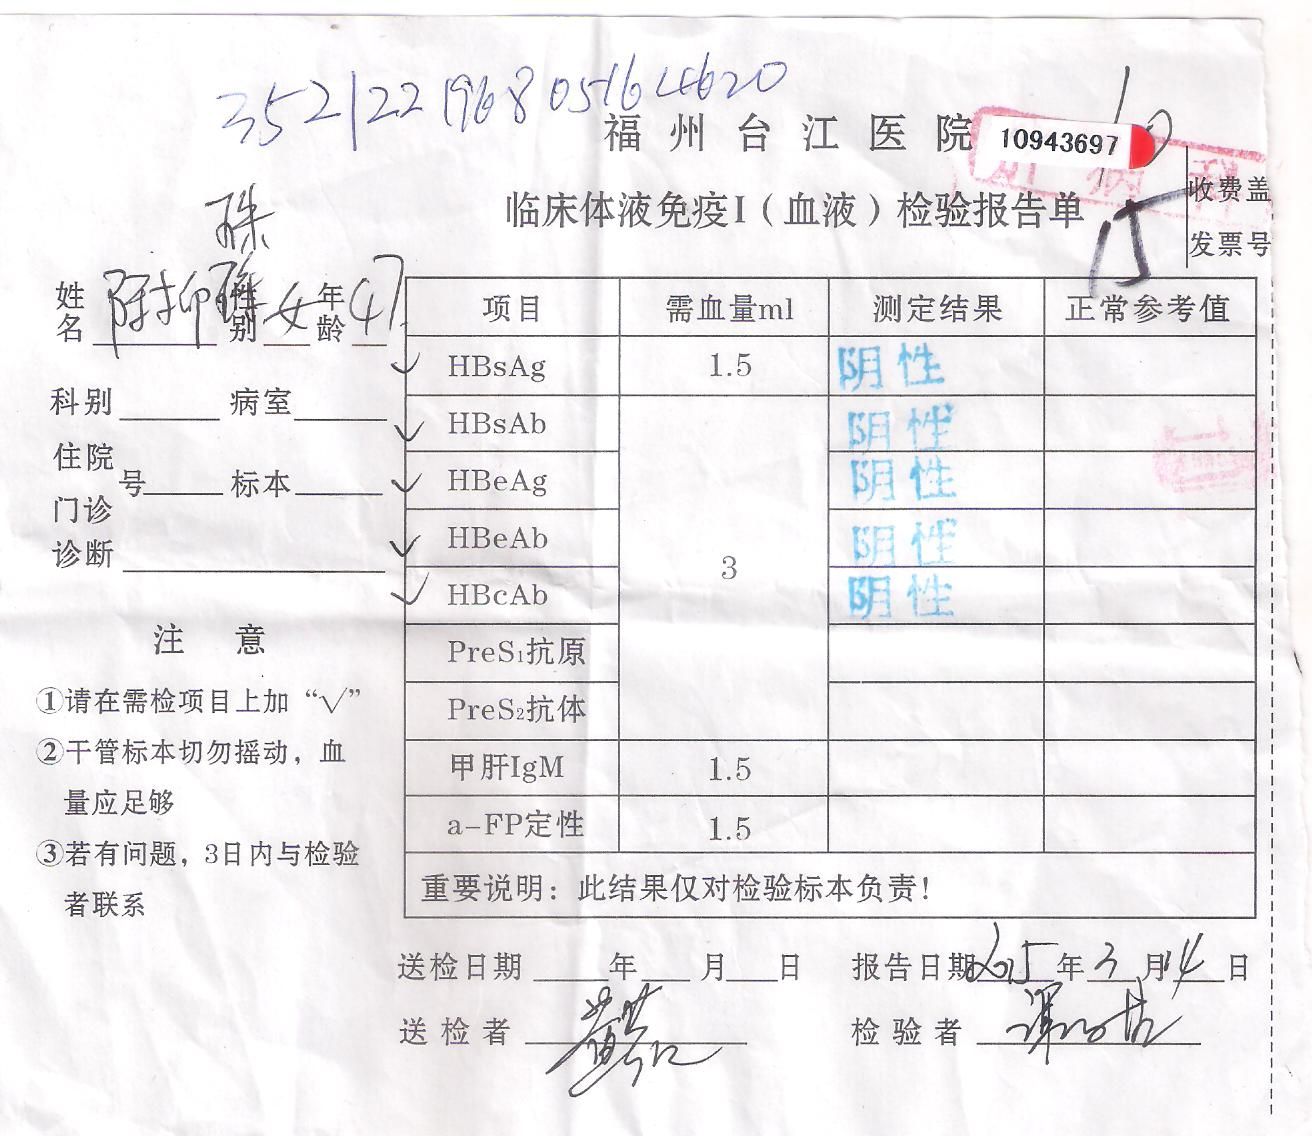 352122196805164620
福州台江医院
10943697
临床体液免疫I（血液）检验报告单
15
收费盖
发票号
珠
姓名 陈抑珠 性别 女 年龄 47
科别 病室
住院
门诊 号 标本
诊断
注 意
①请在需检项目上加“√”
②干管标本切勿摇动，血
量应足够
③若有问题，3日内与检验
者联系
项目 需血量ml 测定结果 正常参考值
✓ HBsAg 1.5 阴性
✓ HBsAb 阴性
✓ HBeAg 阴性
✓ HBeAb 3 阴性
✓ HBcAb 阴性
PreS₁抗原
PreS₂抗体
甲肝IgM 1.5
a-FP定性 1.5
重要说明：此结果仅对检验标本负责！
送检日期 年 月 日 报告日期 2015 年 3 月 14 日
送检者 检验者